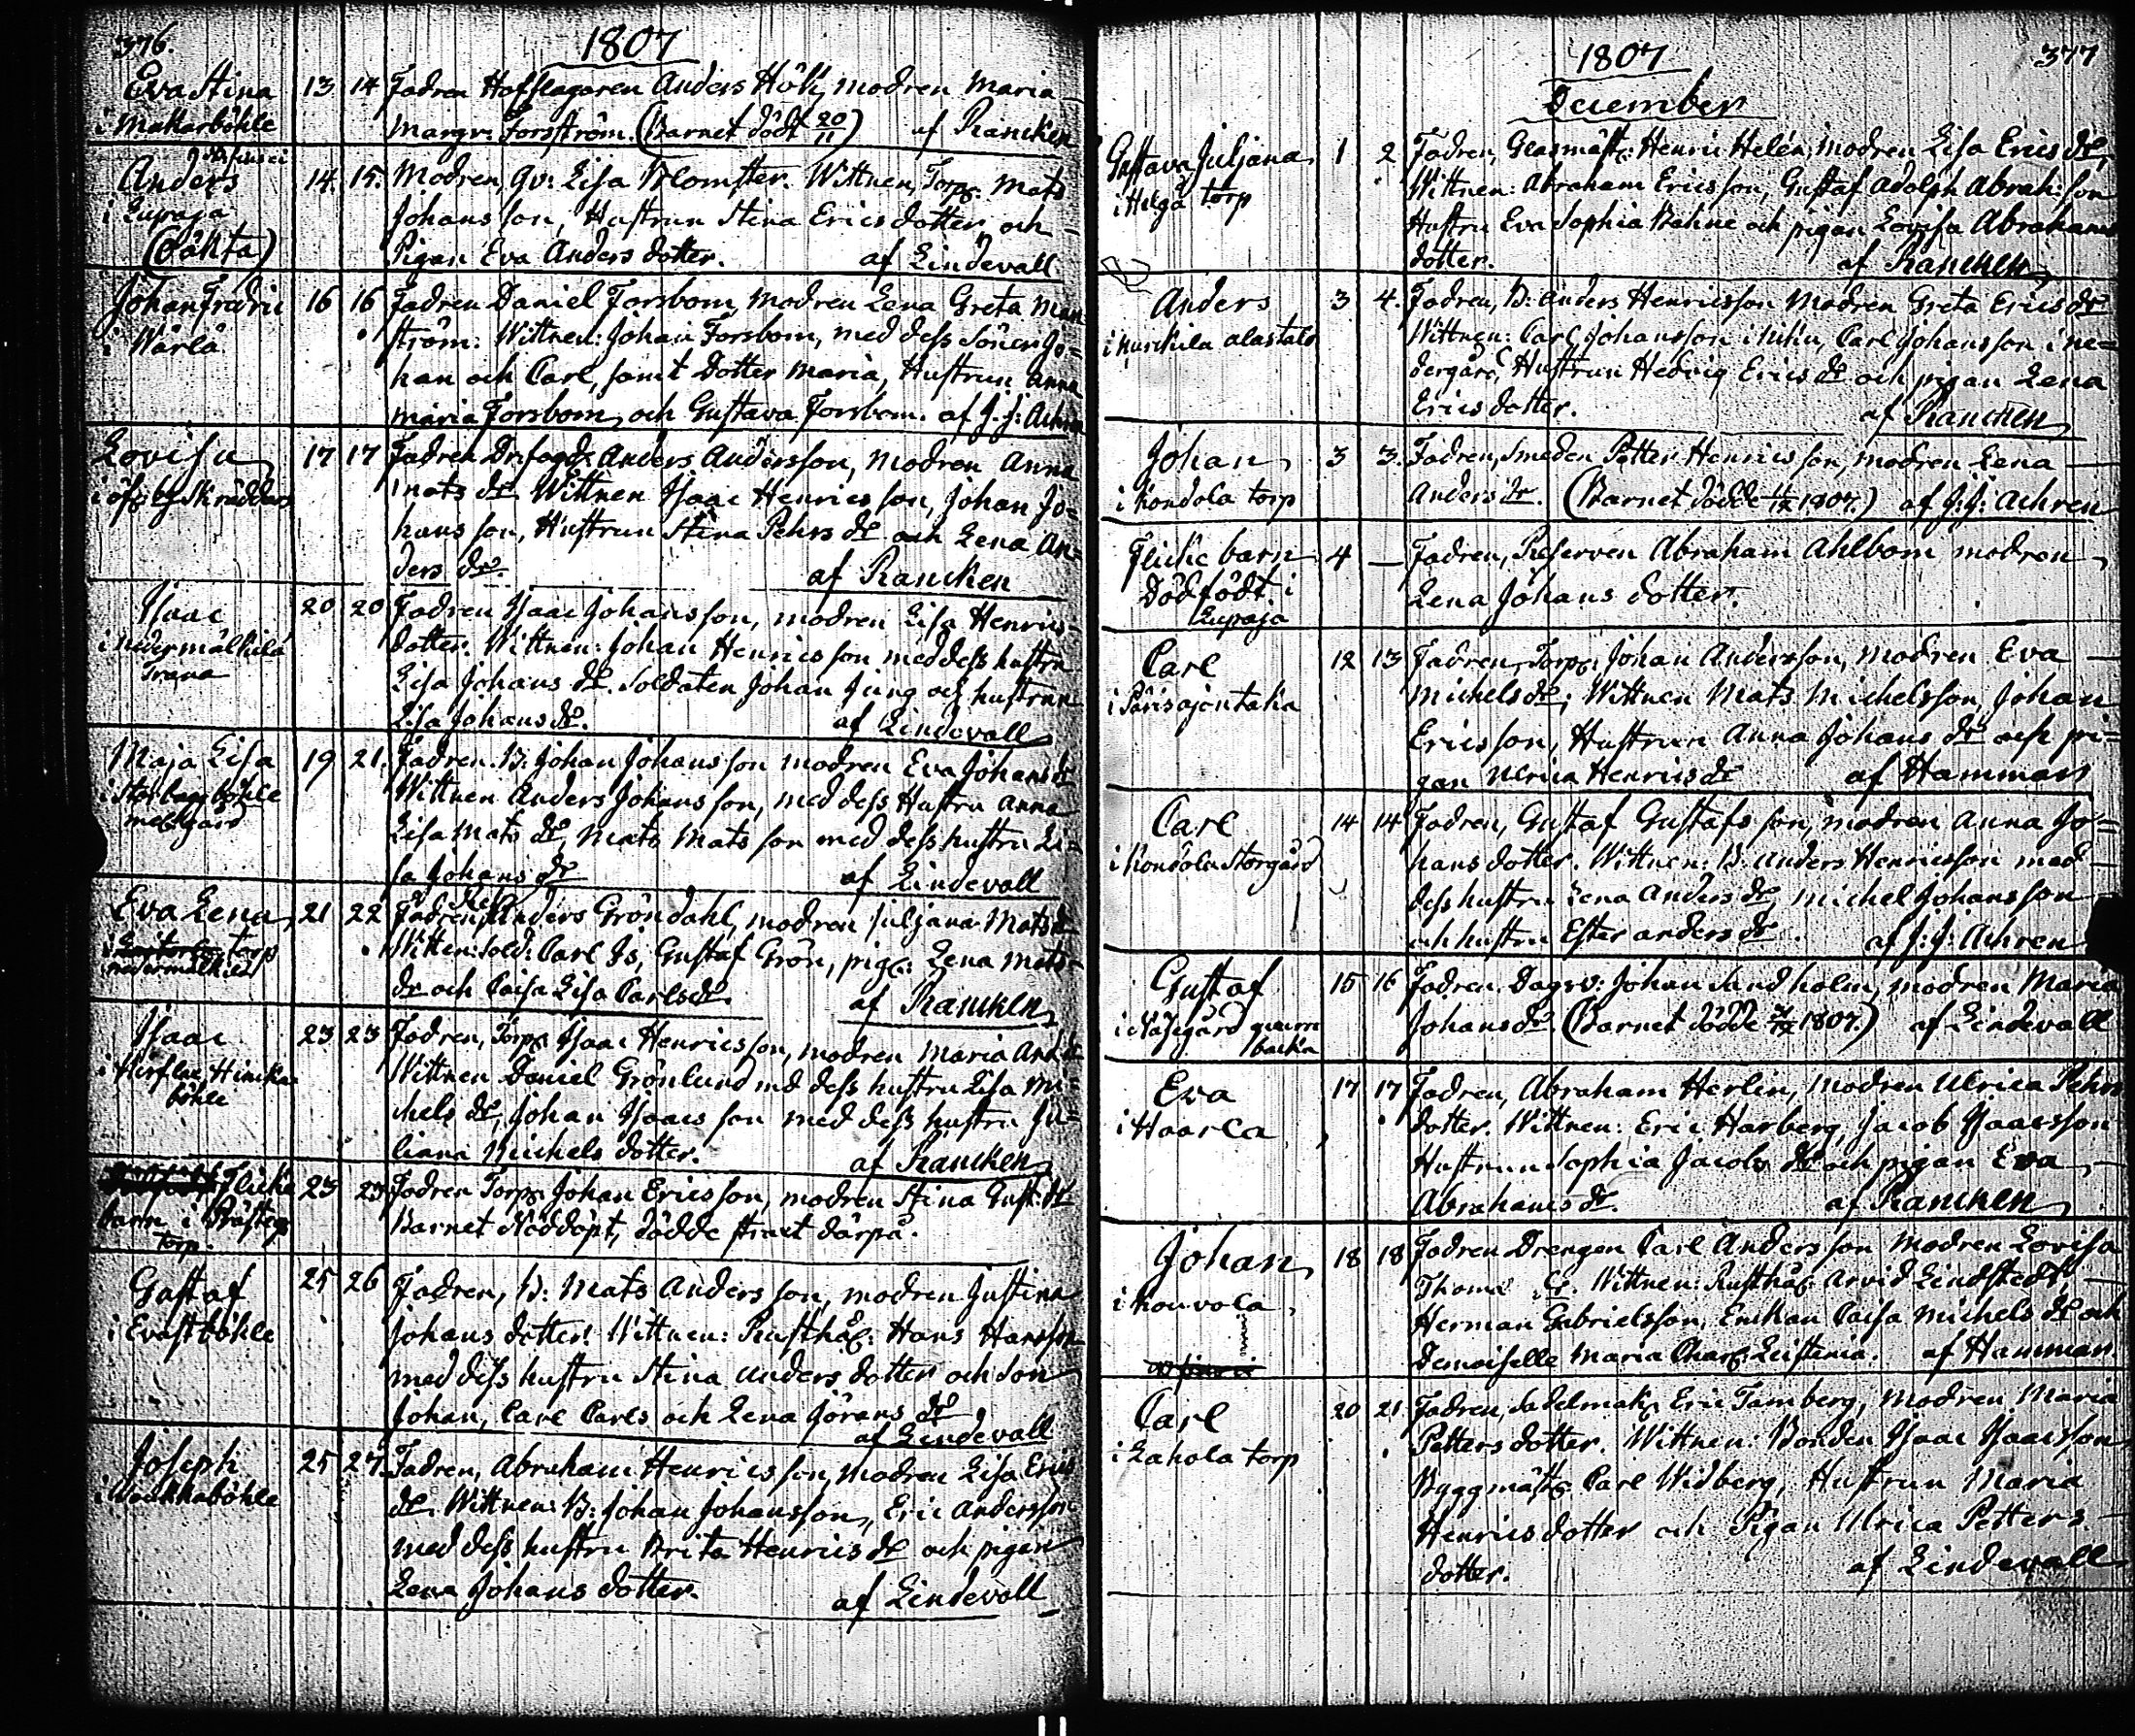 376.
1807
Eva Stina 13 14 Fadren Hofslagaren Anders Höök, modren Maria
i Mattarböhle Margr: Forsström. (Barnet dödt 20/11) af Rancken
Anders 14. 15. Modren, Qv: Lisa Blomster. Wittnen, Torp: Mats
i Lupaja Johansson, Hustrun Stina Ericsdotter och
(oäkta) Pigan Eva Andersdotter. af Lindevall
Johan Fredric 16 16 Fadren Daniel Forsbom, Modren Lena Greta
i Wärlä ström. Wittnen: Johan Forsbom, med dess Söner Jo=
han och Carl, samt Dotter Maria, Hustrun Anna
Maria Forsbom, och Gustava Forsbom. af J. J: Achren
Lovisa 17 17 Fadren Drefogd: Anders Andersson, Modren Anna
Mats dr. Wittnen Isaac Henricsson, Johan Jo=
hansson, Hustrun Stina Pehrs dr och Lena An=
ders dr. af Rancken
Isaac 20 20 Fadren Isaac Johansson, modren Lisa Henrics
i Nedermälkilä dotter. Wittnen: Johan Henricsson med dess hustru
Trana Lisa Johans dr. Soldaten Johan Jung och hustrun
Lisa Johans dr. af Lindevall
Maja Lisa 19 21. Fadren. B: Johan Johansson modren Eva Johans dr
Wittnen Anders Johansson, med dess Hustru Anna
Lisa Mats dr, Mats Matsson med dess hustru Li=
sa Johans dr af Lindevall
Eva Lena 21 22 Fadren Anders Gröndahl, modren Juljana Mats dr
torp Wittnen: Sold: Carl Is, Gustaf Grön, pig: Lena Mats
nedermälkilä dr och Caisa Lisa Carls dr. af Rancken
Isaac 23 23 Fadren, Torp: Isaac Henricsson, modren Maria And: dr
Wittnen Daniel Grönlund med dess hustru Lisa Mi=
böhle chels dr, Johan Isaacsson med dess hustru Ju=
liana Michels dotter. af Rancken
Flicke 23 23 Fadren Torp: Johan Ericsson, modren Stina Gust: dr
barn i Barnet Nöddöpt, dödde straxt därpå.
torp.
Gustaf 25 26 Fadren, B: Mats Andersson, modren Justina
i Evastböhle Johans dotter. Wittnen: Rusthål: Hans Hansson
med dess hustru Stina Anders dotter och son
Johan, Carl Carls och Lena Jörans dr
af Lindevall
Joseph 25 27. Fadren, Abraham Henricsson, Modren Lisa Erics
dr. Wittnen: B: Johan Johansson, Eric Andersson
med dess hustru Brita Henrics dr och pigan
Lena Johans dotter. af Lindevall
1807
377
December
Gustava Juljana 1 2 Fadren, Glasmäst: Henric Helén, modren Lisa Erics dr,
i Helgå torp Wittnen: Abraham Ericsson, Gustaf Adolph Abrah:son
Hustru Eva Sophia Behne och pigan Lovisa Abrahams
dotter. af Rancken
Anders 3 4. Fadren, B: Anders Henricsson Modren Greta Erics dr
i Kurkila alastalo Wittnen: Carl Johansson i Niku, Carl Johansson i ne=
dergård, Hustrun Hedvig Erics dr och pigan Lena
Ericsdotter. af Rancken
Johan 3 3. Fadren, Smeden Petter Henricsson, modren Lena
i Kondola torp Anders dr. (Barnet dödde 1807.) af J: J: Achren
Flicke barn 4 — Fadren, Reserven Abraham Ahlbom modren
Dödfödt i Lena Johans dotter.
Lupaja
Carl 12 13 Fadren, Torp: Johan Andersson, modren Eva
Michels dr, Wittnen Mats Michelsson, Johan
Ericsson, Hustrun Anna Johans dr och pi=
gan Ulrica Henrics dr af Hamman
Carl 14 14 Fadren, Gustaf Gustafsson, modren Anna Jo=
i Kondola Storgård hans dotter. Wittnen: B: Anders Henricsson med
dess hustru Lena Anders dr, Michel Johansson
och hustru Ester Anders dr. af J: J: Achren
Gustaf 15 16 Fadren. Dagsv: Johan Sandholm, modren Maria
i Näsegård quarn Johans dr (Barnet dödde 1807.) af Lindevall
backa
Eva 17 17 Fadren, Abraham Herlin, Modren Ulrica Pehrs
i Haarla dotter. Wittnen: Eric Harberg, Jacob Isaacsson
Hustrun Sophia Jacobs dr och pigan Eva
Abrahams dr. af Rancken
Johan 18 18 Fadren Drengen Carl Andersson Modren Lovisa
i Kouvola Thomæ dr. Wittnen: Rusthål: Arvid Lindstedt
Herman Gabrielsson, Enkan Caisa Michels dr och
Demoiselle Maria Charl: Leistenia. af Hamman
Carl 20 21 Fadren, Sadelmak: Eric Tamberg, Modren Maria
i Lahola torp Petters dotter. Wittnen: Bonden Isaac Isaacsson
Byggmäst: Carl Widberg, Hustrun Maria
Henrics dotter och Pigan Ulrica Petters
dotter. af Lindevall